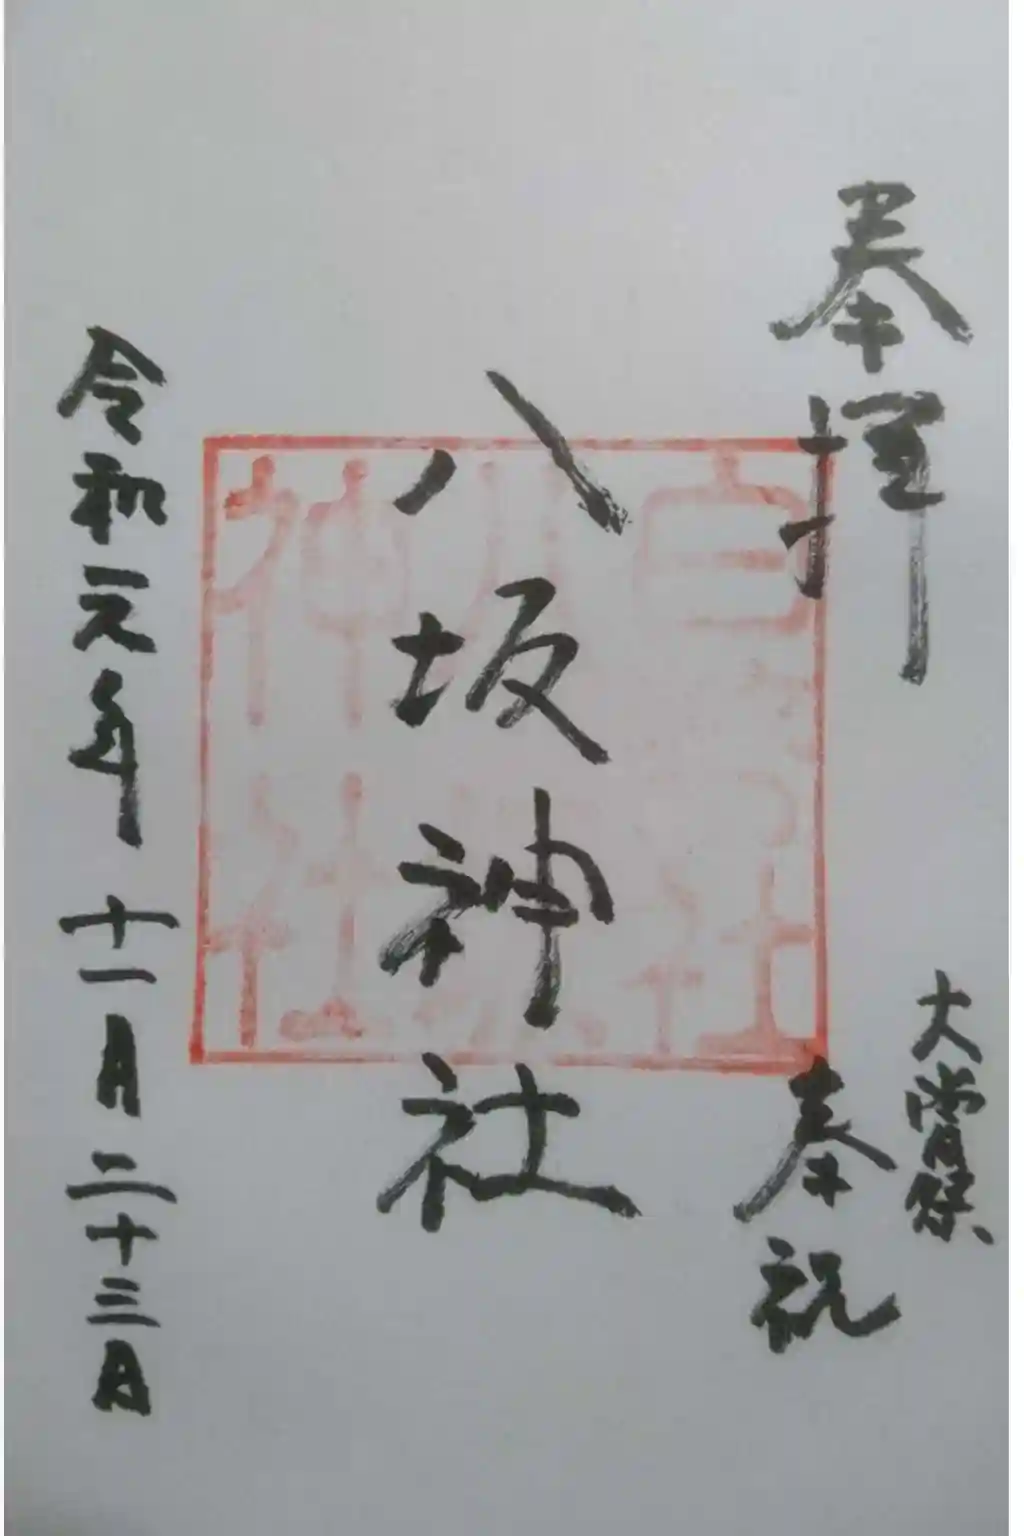 奉拝
大嘗祭
奉祝
八坂神社
令和元年十一月二十三日
八坂
神社